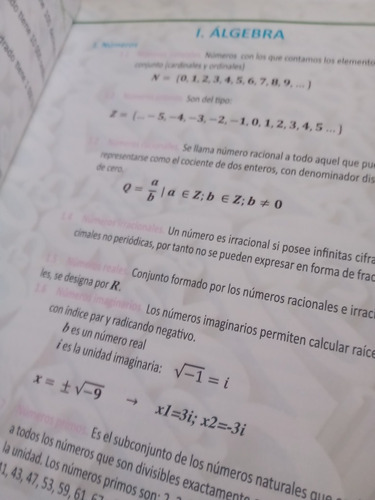 I. ÁLGEBRA
1. Números
Números con los que contamos los elemento
conjunto (cardinales y ordinales)
N = {0, 1, 2, 3, 4, 5, 6, 7, 8, 9, ... }
Son del tipo:
Z = {... − 5, −4, −3, −2, −1, 0, 1, 2, 3, 4, 5 ... }
Se llama número racional a todo aquel que pue
representarse como el cociente de dos enteros, con denominador dis
de cero.
Q = a/b | a ∈ Z; b ∈ Z; b ≠ 0
1.4 Números irracionales. Un número es irracional si posee infinitas cifra
cimales no periódicas, por tanto no se pueden expresar en forma de frac
1.5 Números reales. Conjunto formado por los números racionales e irrac
les, se designa por R.
1.6 Números imaginarios. Los números imaginarios permiten calcular raíce
con índice par y radicando negativo.
b es un número real
i es la unidad imaginaria: √−1 = i
x = ± √−9 → x1=3i; x2=-3i
Números primos. Es el subconjunto de los números naturales que
a todos los números que son divisibles exactamente
la unidad. Los números primos son: 2, 3
41, 43, 47, 53, 59, 61, 67